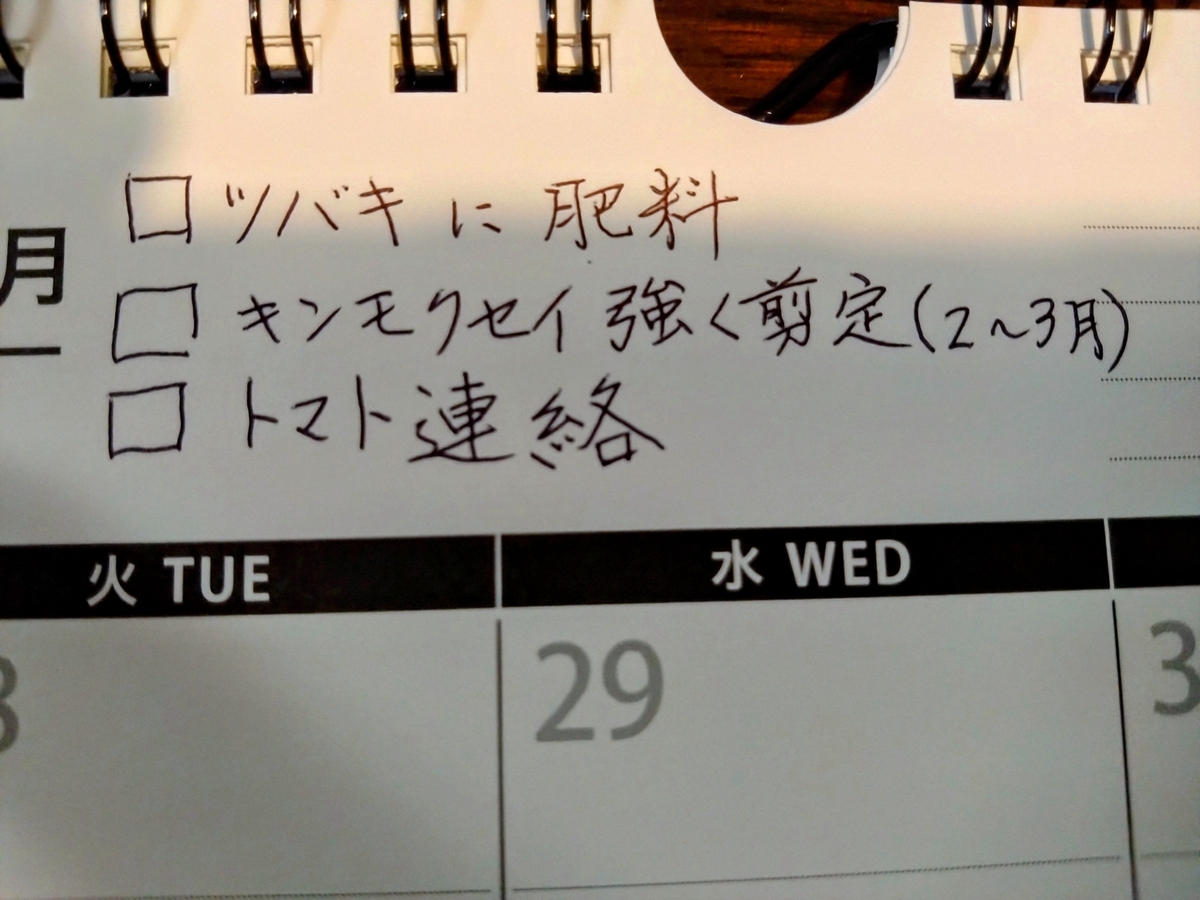 □ ツバキに肥料
□ キンモクセイ 強く剪定(2~3月)
□ トマト連絡
月
火 TUE
水 WED
29